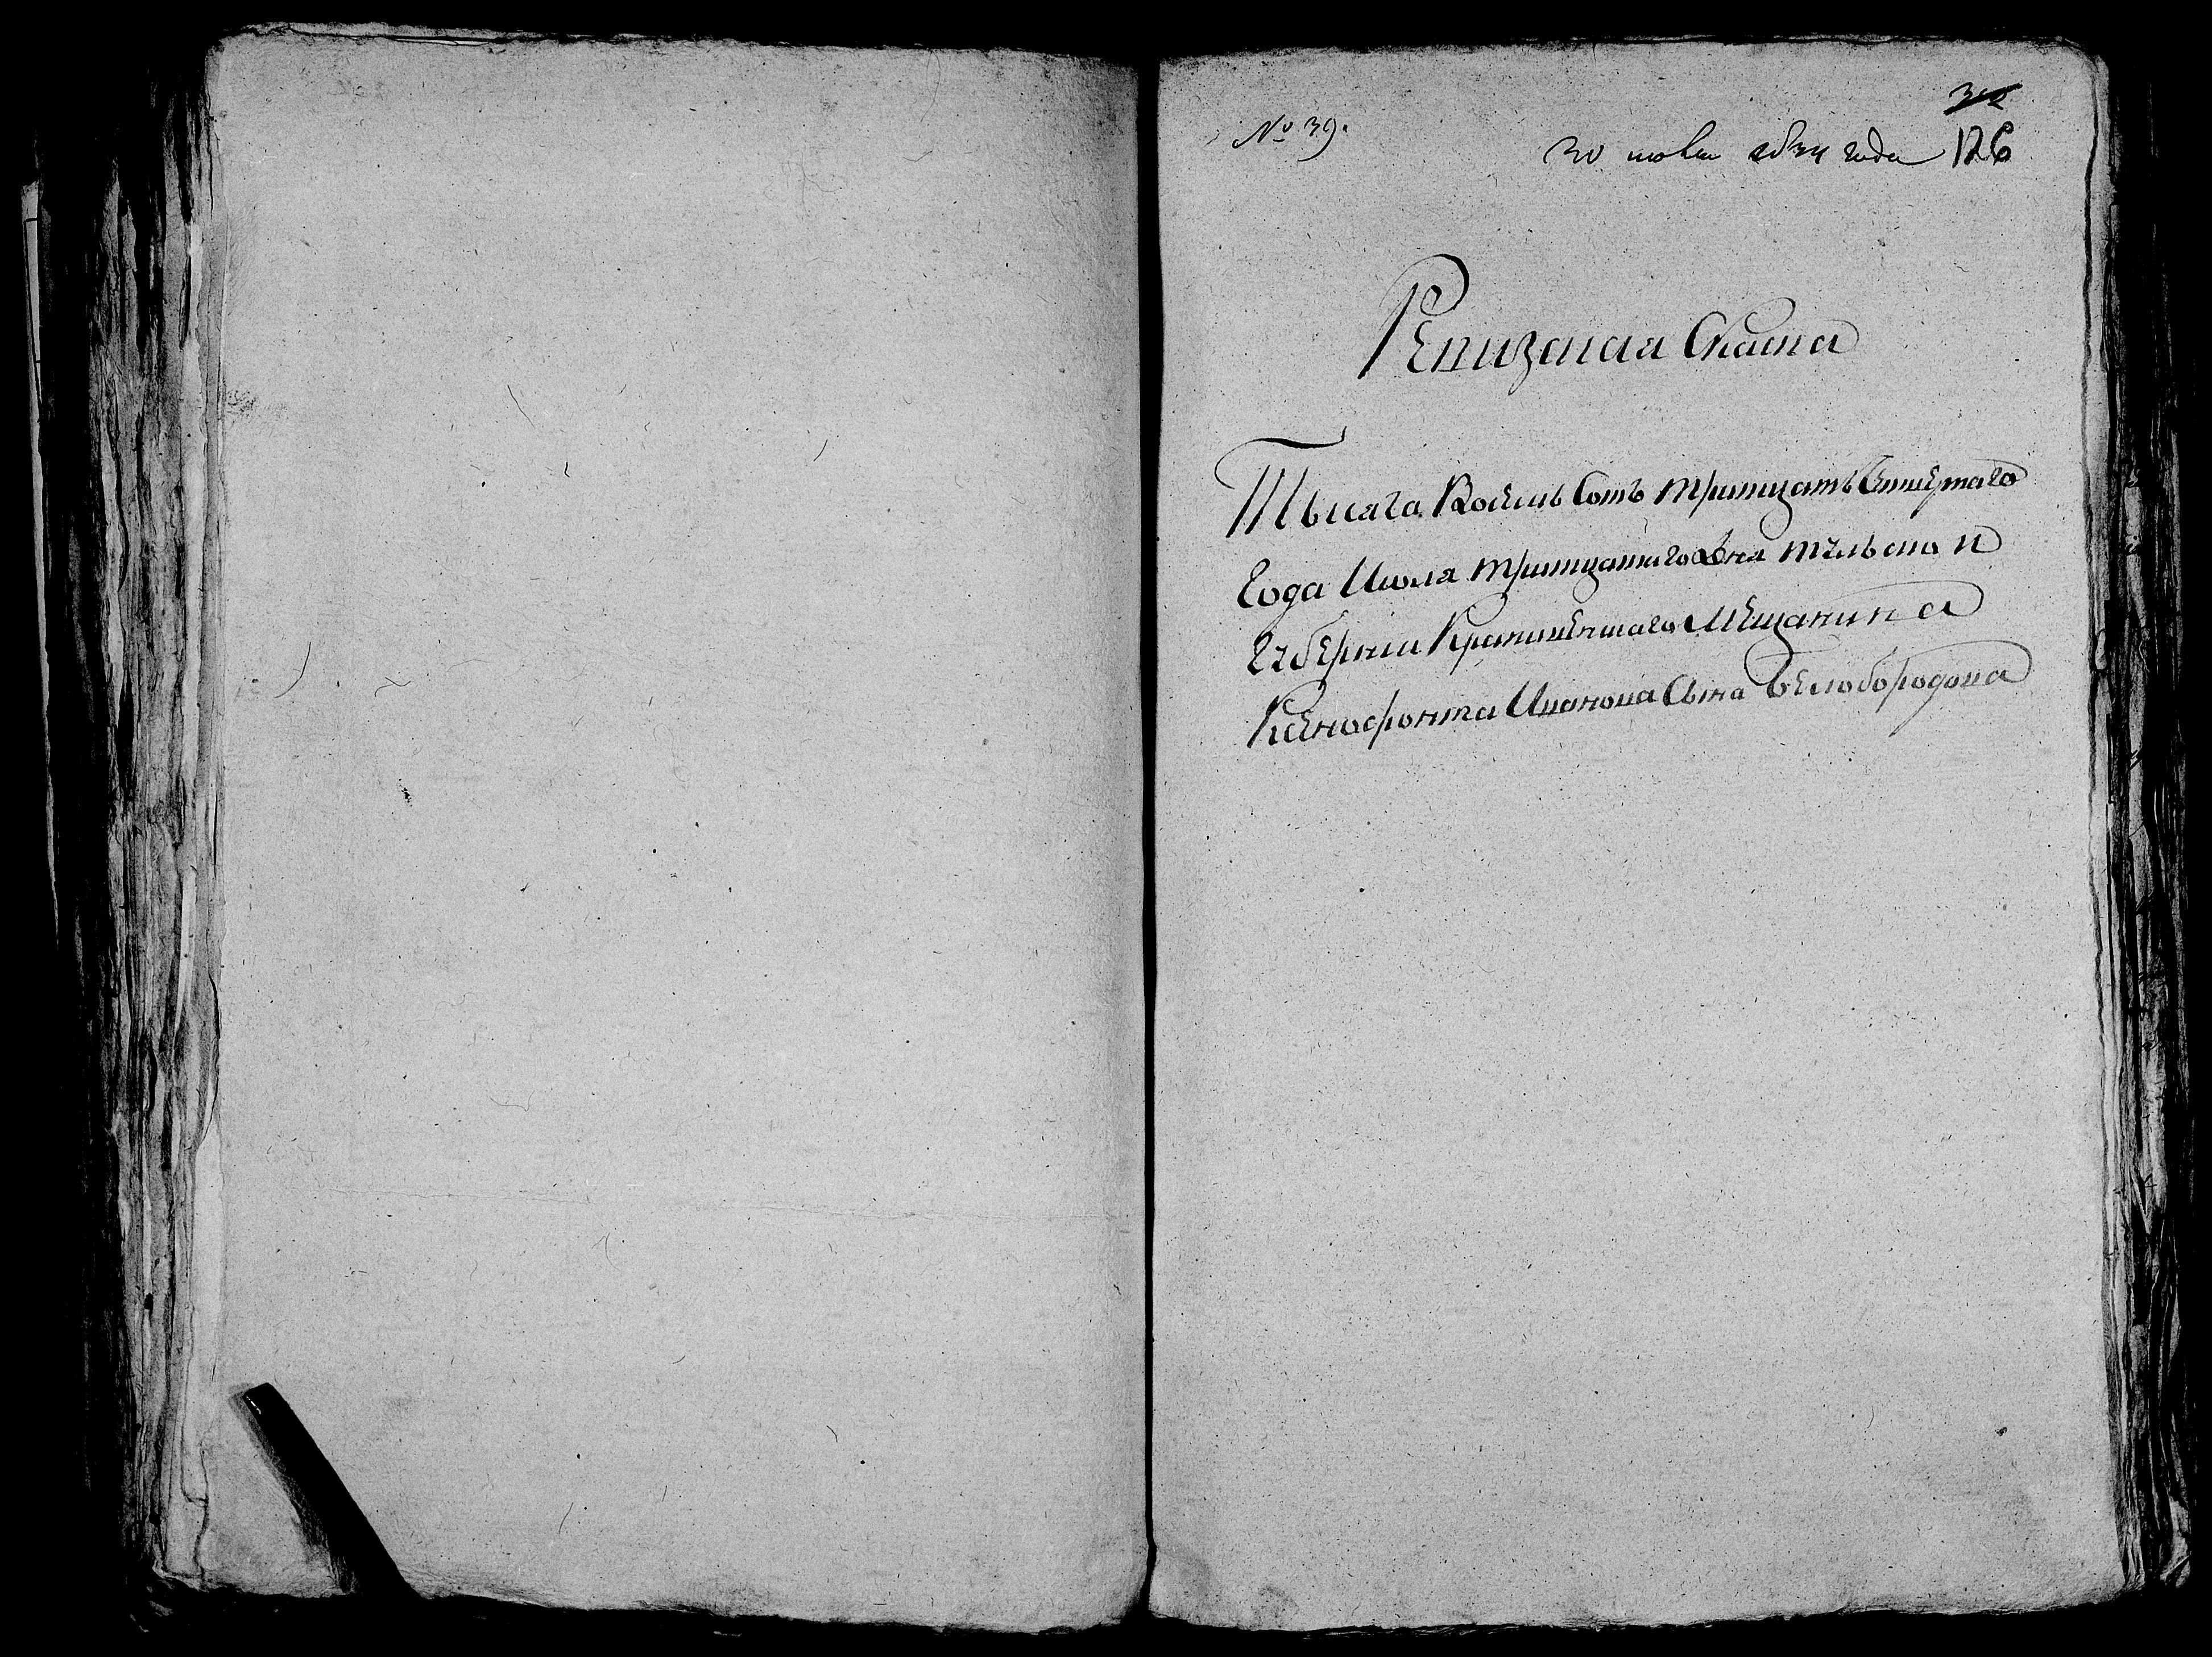 № 39.
30 июля 1834 года 126
Ревизская Сказка
Тысяча Восемь Сотъ тритцать Четвертаго
Года Июля тритцатаго дня тульской
Губернии Крапивенскаго Мещанина
Ксенофонта Иванова Сына Белобородова